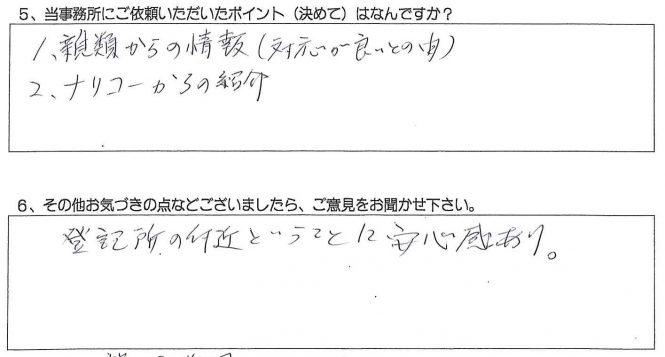 5、当事務所にご依頼いただいたポイント（決めて）はなんですか？
1、親類からの情報（対応が良いとの由）
2、ナリコーからの紹介
6、その他お気づきの点などございましたら、ご意見をお聞かせ下さい。
登記所の付近ということに安心感あり。